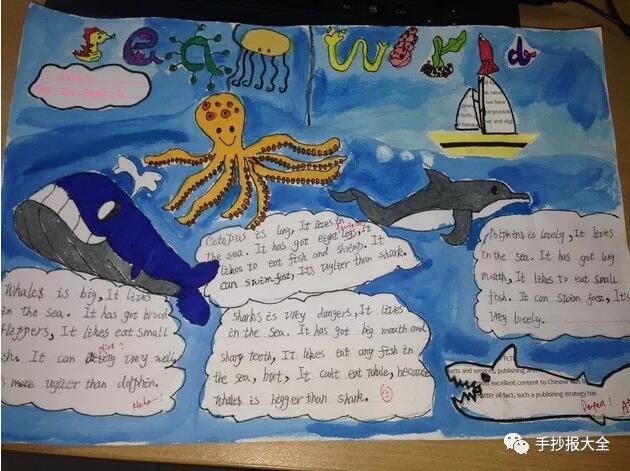 Sea world
Octopus is long, It lives in
the sea. It has got eight legs, it
likes to eat fish and shrimp. It
can swim fast, It's uglier than shark.
Whales is big, It lives
in the sea. It has got broad
flippers, It likes eat small
It can very well
more uglier than dolphin.
Haha~!
Sharks is very dangers, It lives
in the sea. It has got big mouth and
sharp teeth, It likes eat any fish in
the sea, but, It can't eat whale, because
whales is bigger than shark.
Dolphins is lovely, It lives
in the sea. It has got long
mouth, It likes to eat small
fish. It can swim fast, It's
very lovely.
cts and services, publishing and
excellent content to Chinese
tter of fact, such a publishing strategy has
Perfect!
手抄报大全